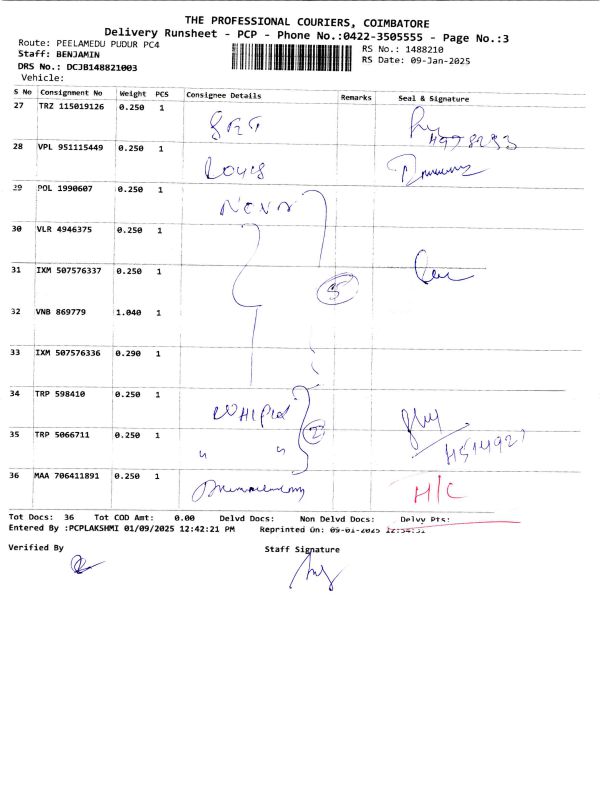 THE PROFESSIONAL COURIERS, COIMBATORE
Delivery Runsheet - PCP - Phone No.:0422-3505555 - Page No.:3
Route: PEELAMEDU PUDUR PC4
RS No.: 1488210
Staff: BENJAMIN
RS Date: 09-Jan-2025
DRS No.: DCJB148821003
Vehicle:
S No Consignment No Weight PCS Consignee Details Remarks Seal & Signature
27 TRZ 115019126 0.250 1
28 VPL 951115449 0.250 1 Louis
29 POL 1990607 0.250 1
30 VLR 4946375 0.250 1
31 IXM 507576337 0.250 1 5
32 VNB 869779 1.040 1
33 IXM 507576336 0.290 1
34 TRP 598410 0.250 1
35 TRP 5066711 0.250 1 2
36 MAA 706411891 0.250 1 H/C
Tot Docs: 36 Tot COD Amt: 0.00 Delvd Docs: Non Delvd Docs: Delvy Pts:
Entered By :PCPLAKSHMI 01/09/2025 12:42:21 PM Reprinted On: 09-01-2025 12:54:31
Verified By Staff Signature